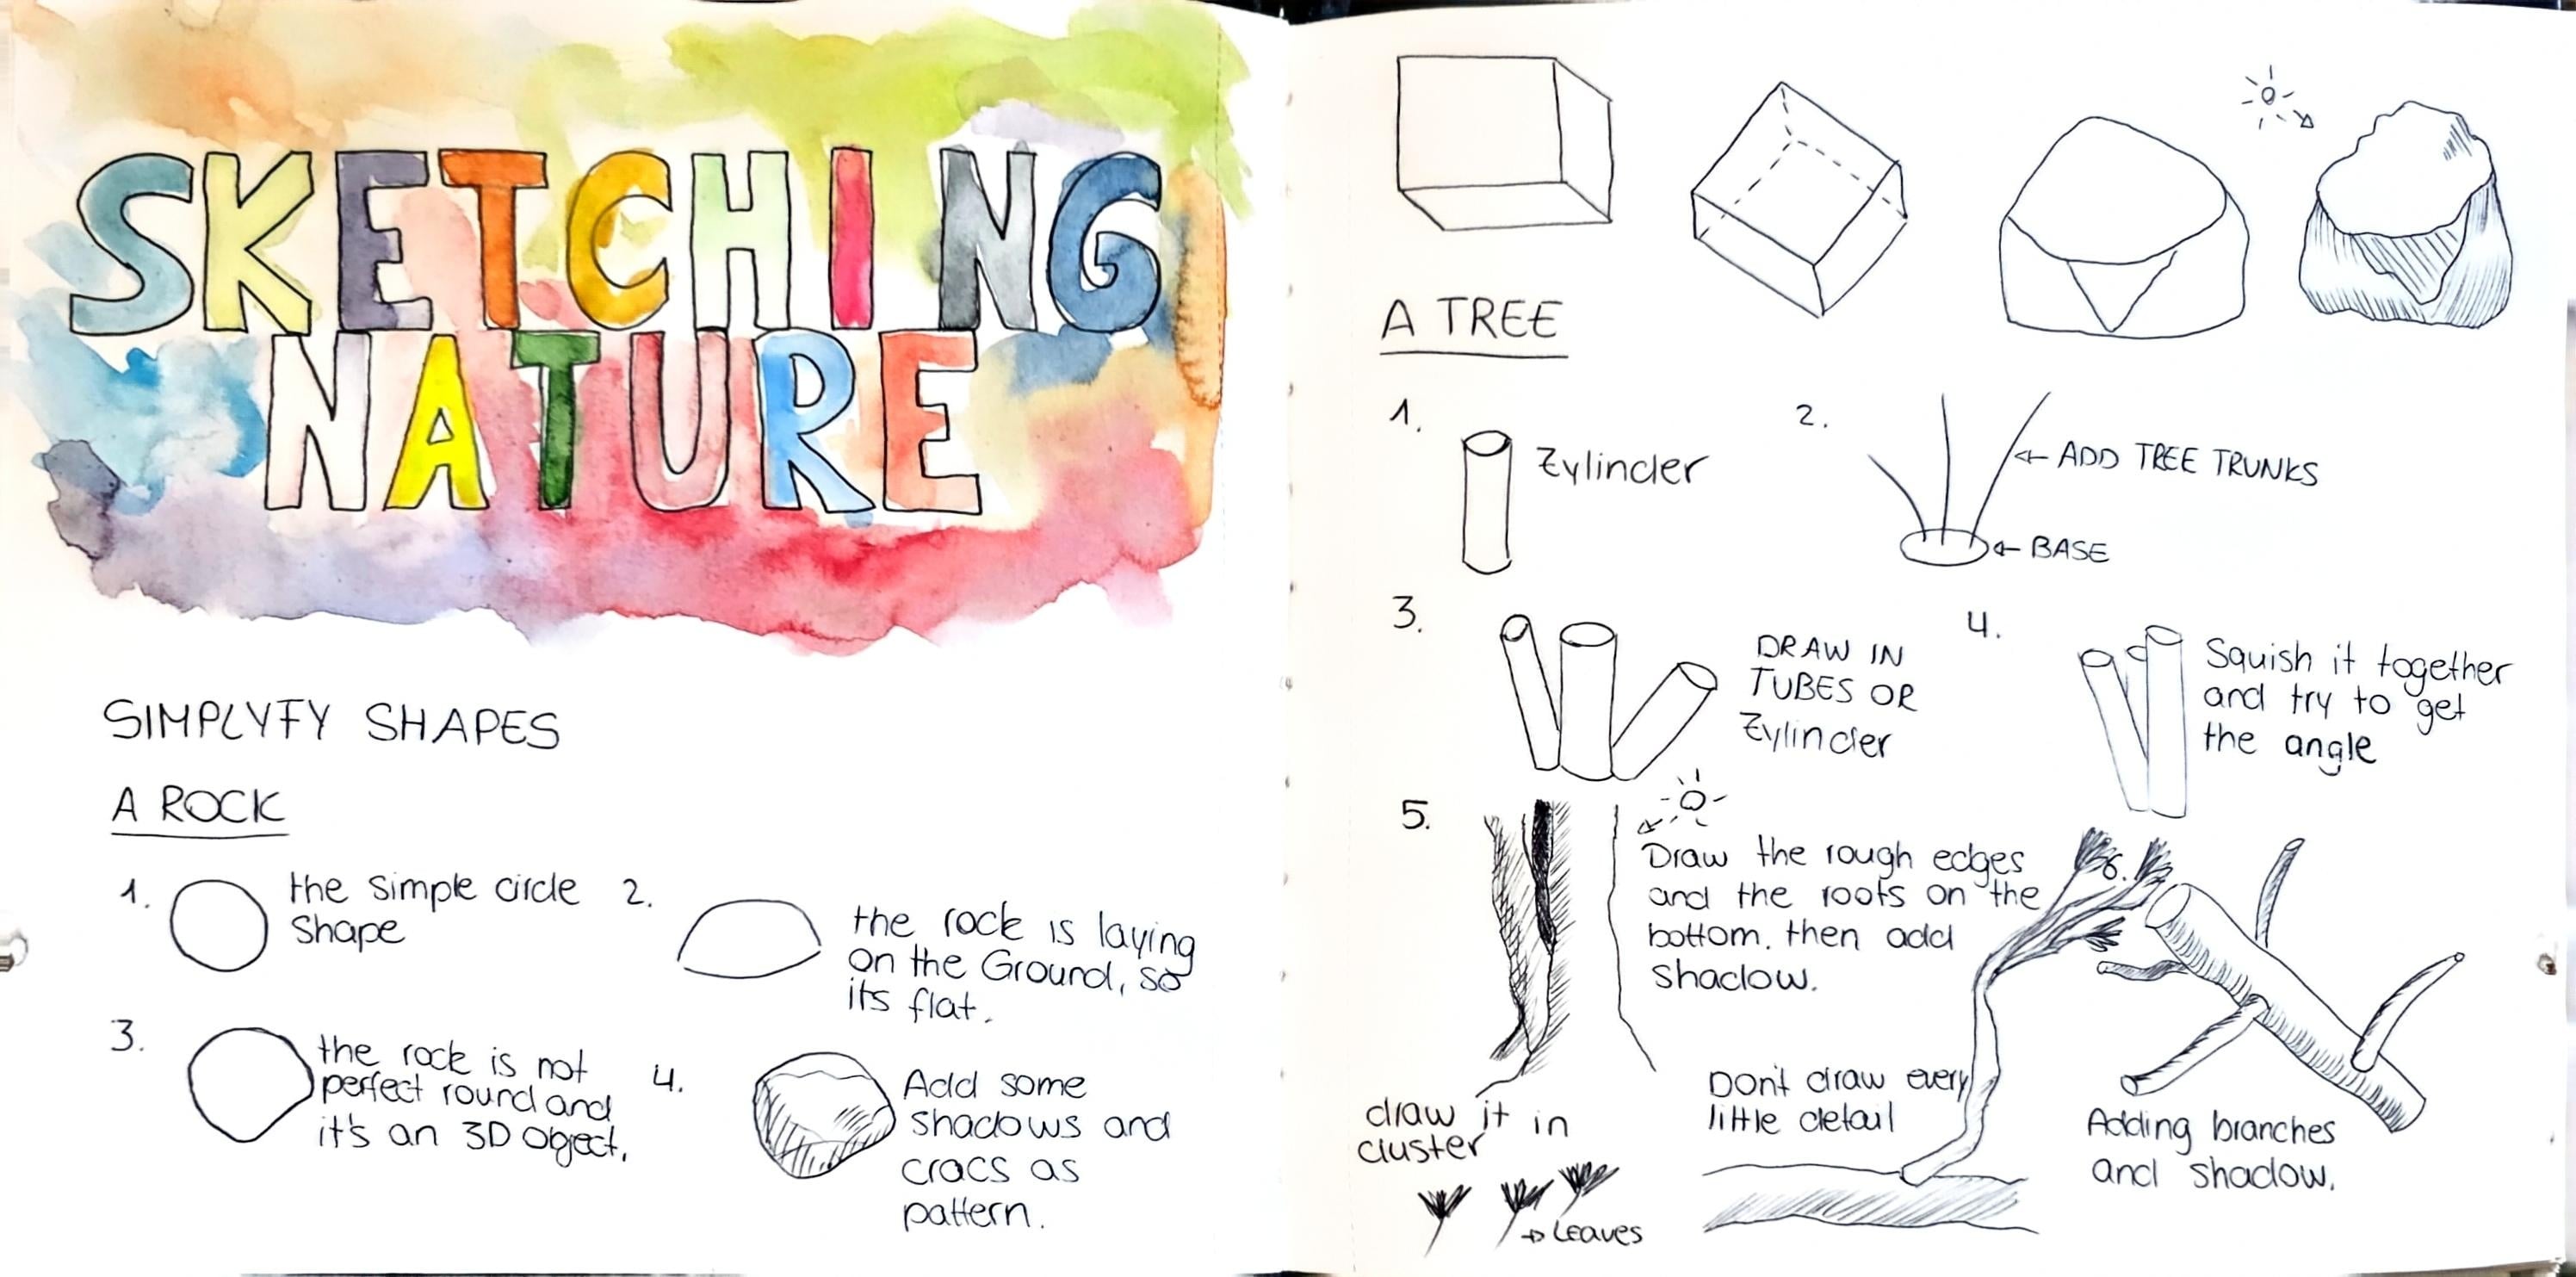 SKETCHING
NATURE
SIMPLYFY SHAPES
A ROCK
1. the simple circle
Shape
2. the rock is laying
on the Ground, so
its flat.
3. the rock is not
perfect round and
it's an 3D Object.
4. Add some
shadows and
cracs as
pattern.
A TREE
1. Zylinder
2. ADD TREE TRUNKS
BASE
3. DRAW IN
TUBES OR
Zylinder
4. Squish it together
and try to get
the angle
5. Draw the rough edges
and the roots on the
bottom. then add
shadow.
draw it in
cluster
Leaves
Don't draw every
little detail
6.
Adding branches
and shadow.